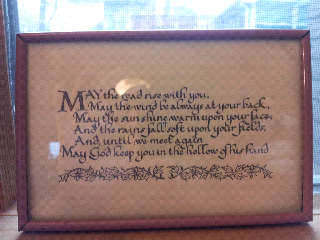 MAY the road rise with you.
May the wind be always at your back,
May the sun shine warm upon your face,
And the rains fall soft upon your fields,
And, until we meet again
May God keep you in the hollow of his hand